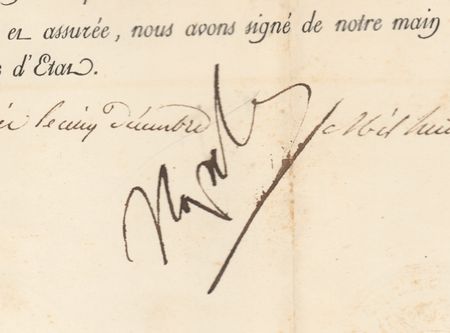 et assurée, nous avons signé de notre main
d'Etat.
le cinq Décembre Mil huit
Nap